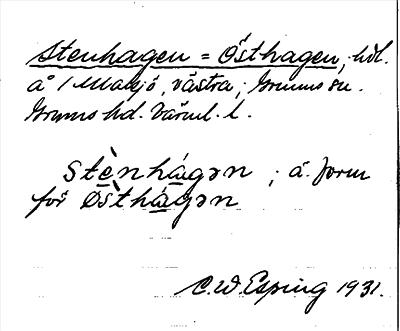 Stenhagen = Östhagen, hdl.
å 1 Malsjö, västra; Grums sn.
Grums hd. Värml. l.
Stènhágən ; ä. form
för Østhágən
C. W. Esping 1931.